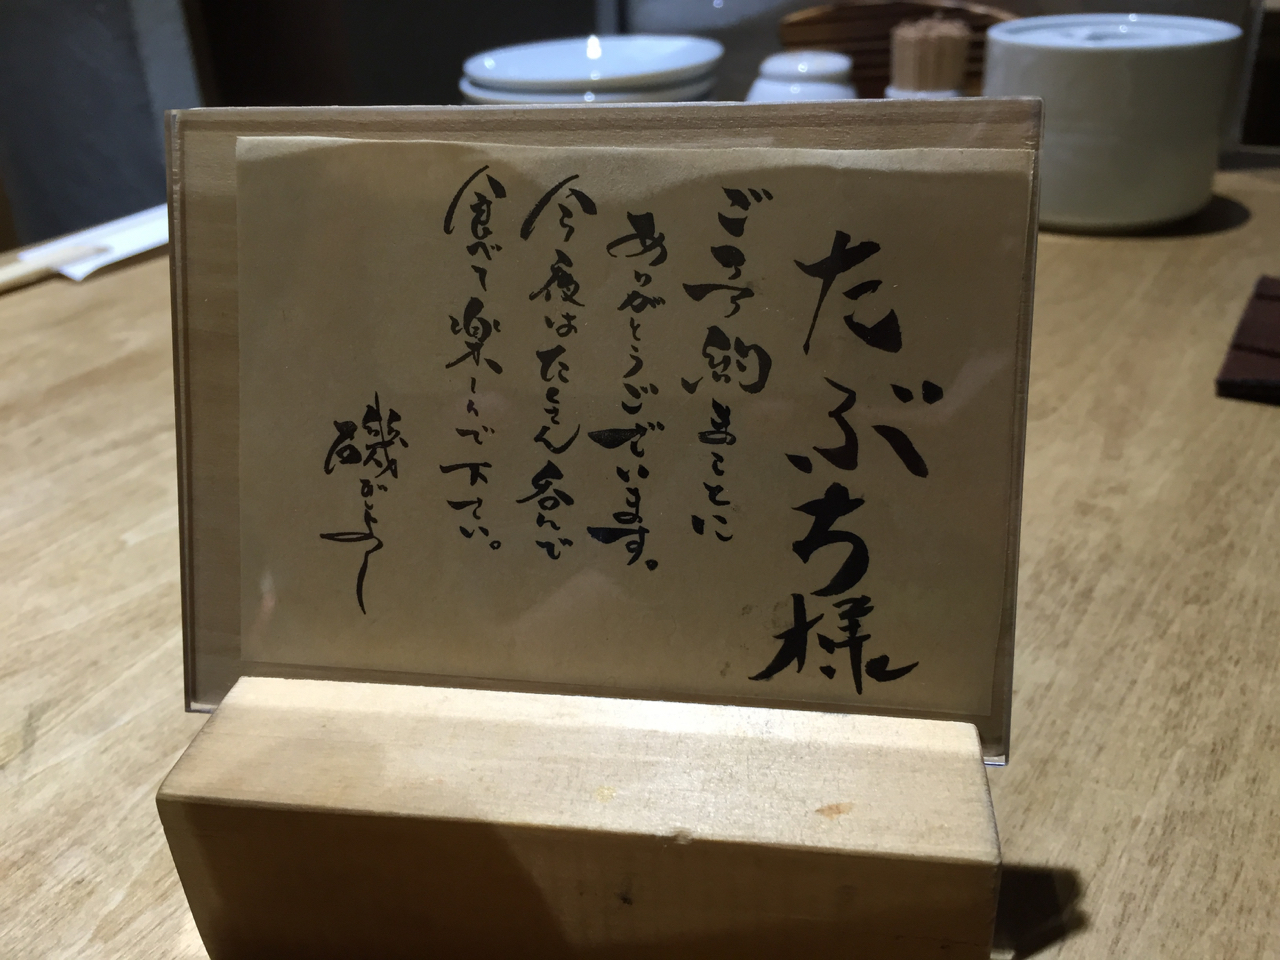 たぶち様
ご予約まことに
ありがとうございます。
今夜はたくさん呑んで
食べて楽しんで下さい。
磯がよし